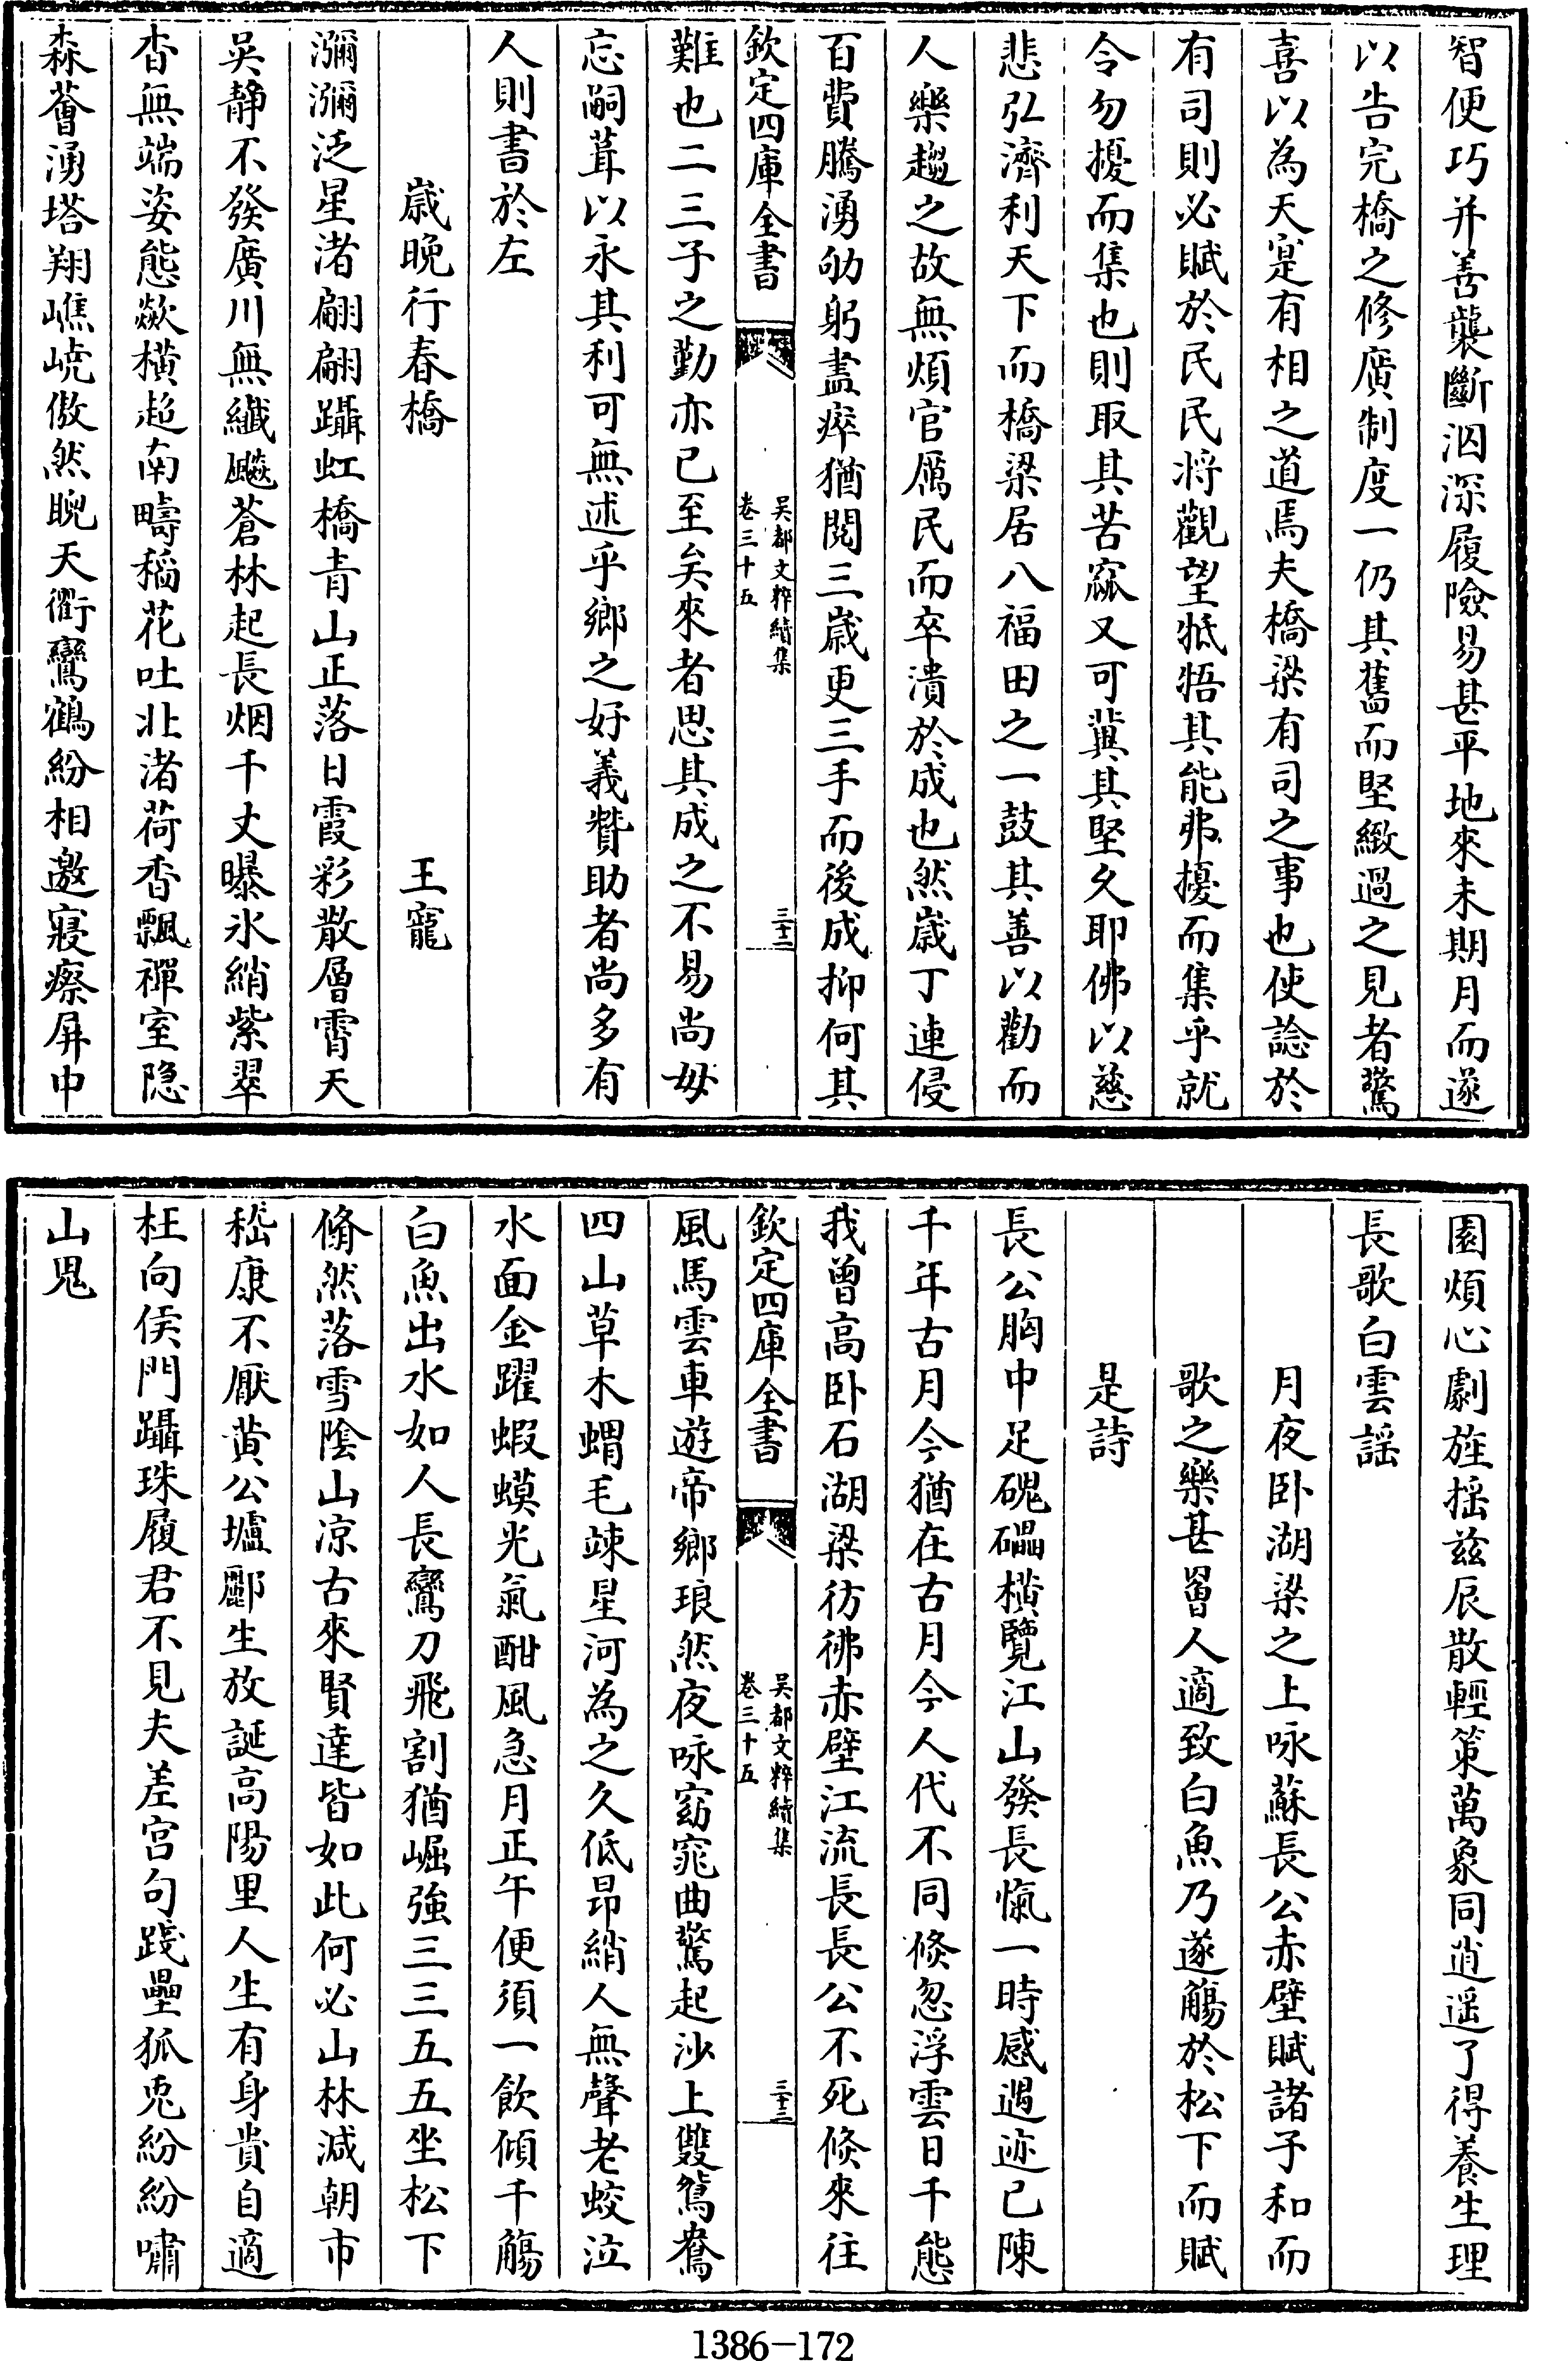 智便巧并善襲斷洇深履險易甚平地來未期月而遂
以告完橋之修廣制度一仍其舊而堅緻過之見者驚
喜以為天寔有相之道焉夫橋梁有司之事也使諗於
有司則必賦於民民將觀望牴牾其能弗擾而集乎就
令勿擾而集也則取其苦窳又可冀其堅久耶佛以慈
悲弘濟利天下而橋梁居八福田之一鼓其善以勸而
人樂趨之故無煩官厲民而卒潰於成也然歲丁連侵
百費騰湧劬躬盡瘁猶閱三歲更三手而後成抑何其
欽定四庫全書
吳都文粹續集
卷三十五
三十二
難也二三子之勤亦已至矣來者思其成之不易尚毋
忘嗣葺以永其利可無述乎鄉之好義贊助者尚多有
人則書於左
歲晚行春橋 王寵
瀰瀰泛星渚翩翩躡虹橋青山正落日霞彩散層霄天
吳静不發廣川無纖飈蒼林起長烟千丈曝氷綃紫翠
杳無端姿態歘橫超南疇稲花吐北渚荷香飄禪室隐
森薈湧塔翔嶕嶢傲然睨天衢鸞鶴紛相邀寢瘵屏中
園煩心劇旌揺兹辰散輕策萬象同逍遥了得養生理
長歌白雲謡
月夜卧湖梁之上咏蘇長公赤壁賦諸子和而
歌之樂甚罾人適致白魚乃遂觴於松下而賦
是詩
長公胸中足磈礧橫覽江山發長愾一時感遇迹已陳
千年古月今猶在古月今人代不同倏忽浮雲日千態
我曾高卧石湖梁彷彿赤壁江流長長公不死倏來往
欽定四庫全書
吳都文粹續集
卷三十五
三十三
風馬雲車遊帝鄉琅然夜咏窈窕曲驚起沙上雙鴛鴦
四山草木蝟毛竦星河為之久低昂綃人無聲老蛟泣
水面金躍蝦蟆光氣酣風急月正午便須一飲傾千觴
白魚出水如人長鸞刀飛割猶崛強三三五五坐松下
翛然落雪陰山凉古來賢達皆如此何必山林減朝市
嵇康不厭黄公壚酈生放誕高陽里人生有身貴自適
枉向侯門躡珠履君不見夫差宫句踐壘狐兎紛紛嘯
山鬼
1386-172